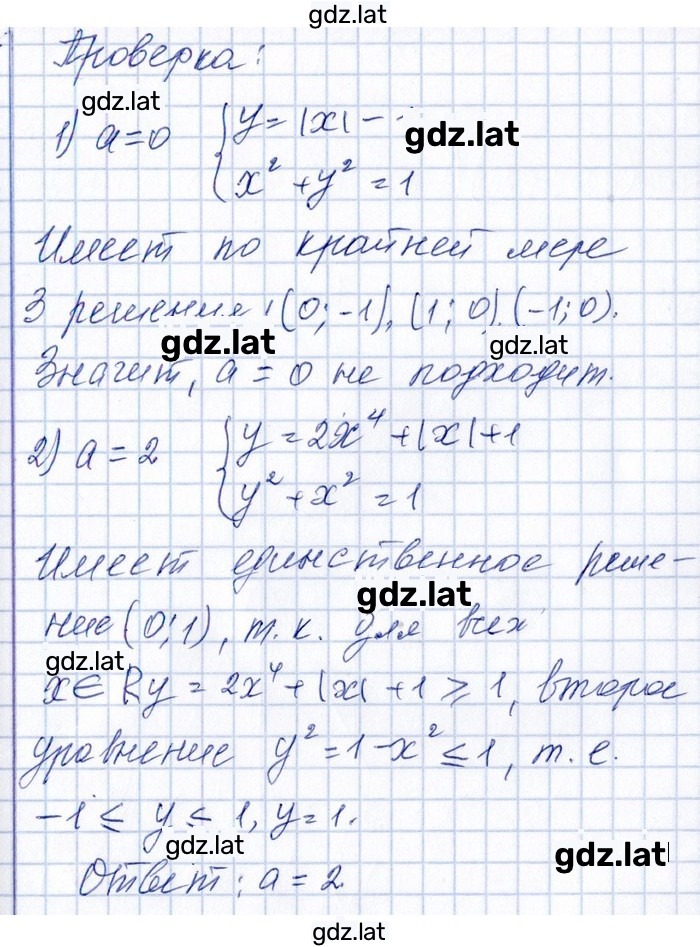 gdz.lat
Проверка:
gdz.lat
1) a=0 { y = |x| -
gdz.lat
x² + y² = 1
Имеет по крайней мере
3 решения: (0; -1), (1; 0), (-1; 0).
gdz.lat gdz.lat
Значит, a = 0 не подходит.
2) a = 2 { y = 2x⁴ + |x| + 1
y² + x² = 1
Имеет единственное реше-
gdz.lat
ние (0; 1), т.к. для всех
gdz.lat
x ∈ R y = 2x⁴ + |x| + 1 ⩾ 1, второе
уравнение y² = 1 - x² ≤ 1, т.е.
-1 ≤ y ≤ 1, y = 1.
gdz.lat gdz.lat
Ответ: a = 2
gdz.lat